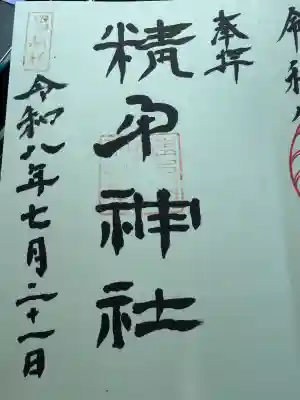 令和
奉拝
精矛神社
令和八年七月二十一日